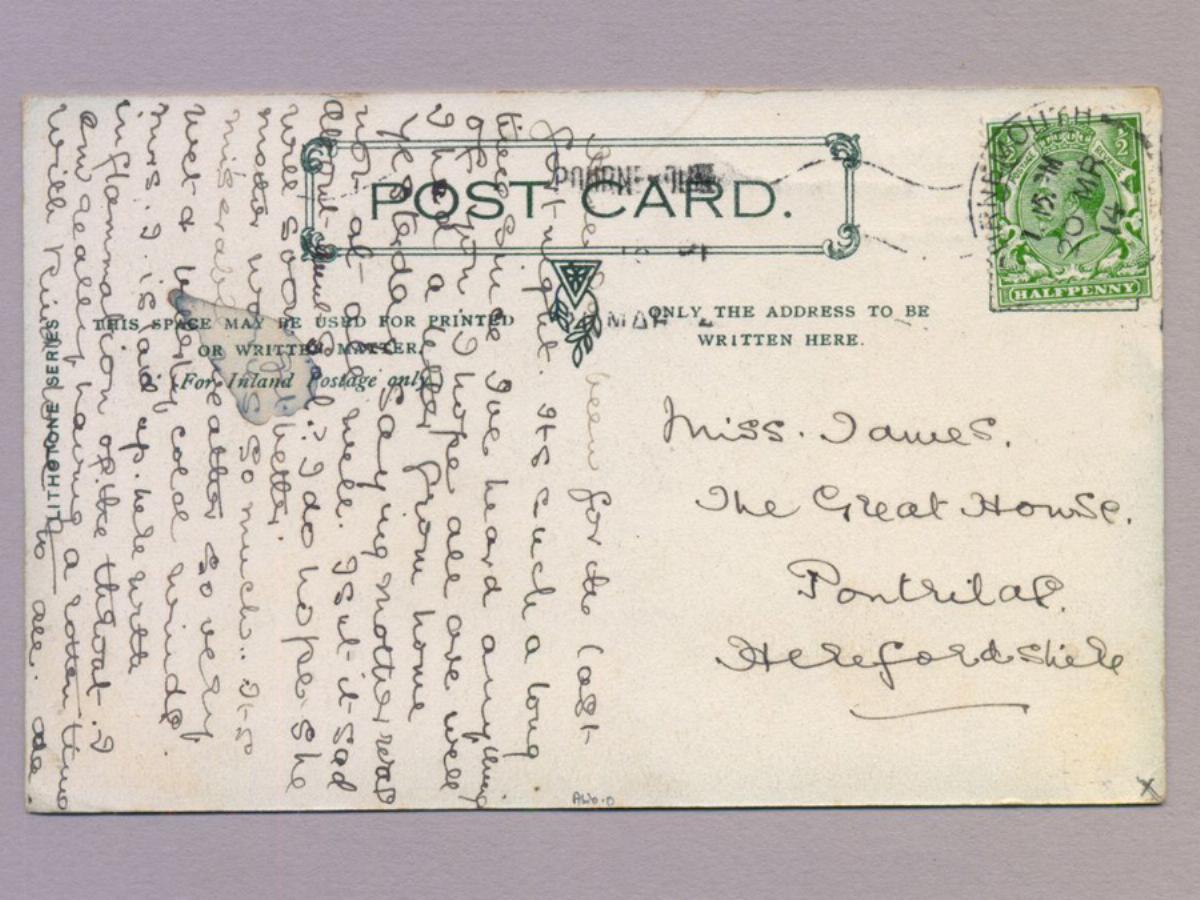 POST CARD.
THIS SPACE MAY BE USED FOR PRINTED
OR WRITTEN MATTER.
(For Inland Postage only)
ONLY THE ADDRESS TO BE
WRITTEN HERE.
LITHOTONE SERIES
BOURNEMOUTH
1.15 PM
20 MR
14
½
HALFPENNY
Miss. James.
The Great House.
Pontrilas.
Herefordshire
been for the last
fortnight. Its such a long
time since Ive heard anything
of you I hope all are well
I had a letter from home
yesterday saying Mother was
not at all well. Isn't it sad
about I do hope she
will soon be better.
mother so much. It is
miserable weather so very
wet & cold winds.
Mrs. J. is laid up here with
inflammation of the throat. I
am really having a rotten time
with to all.